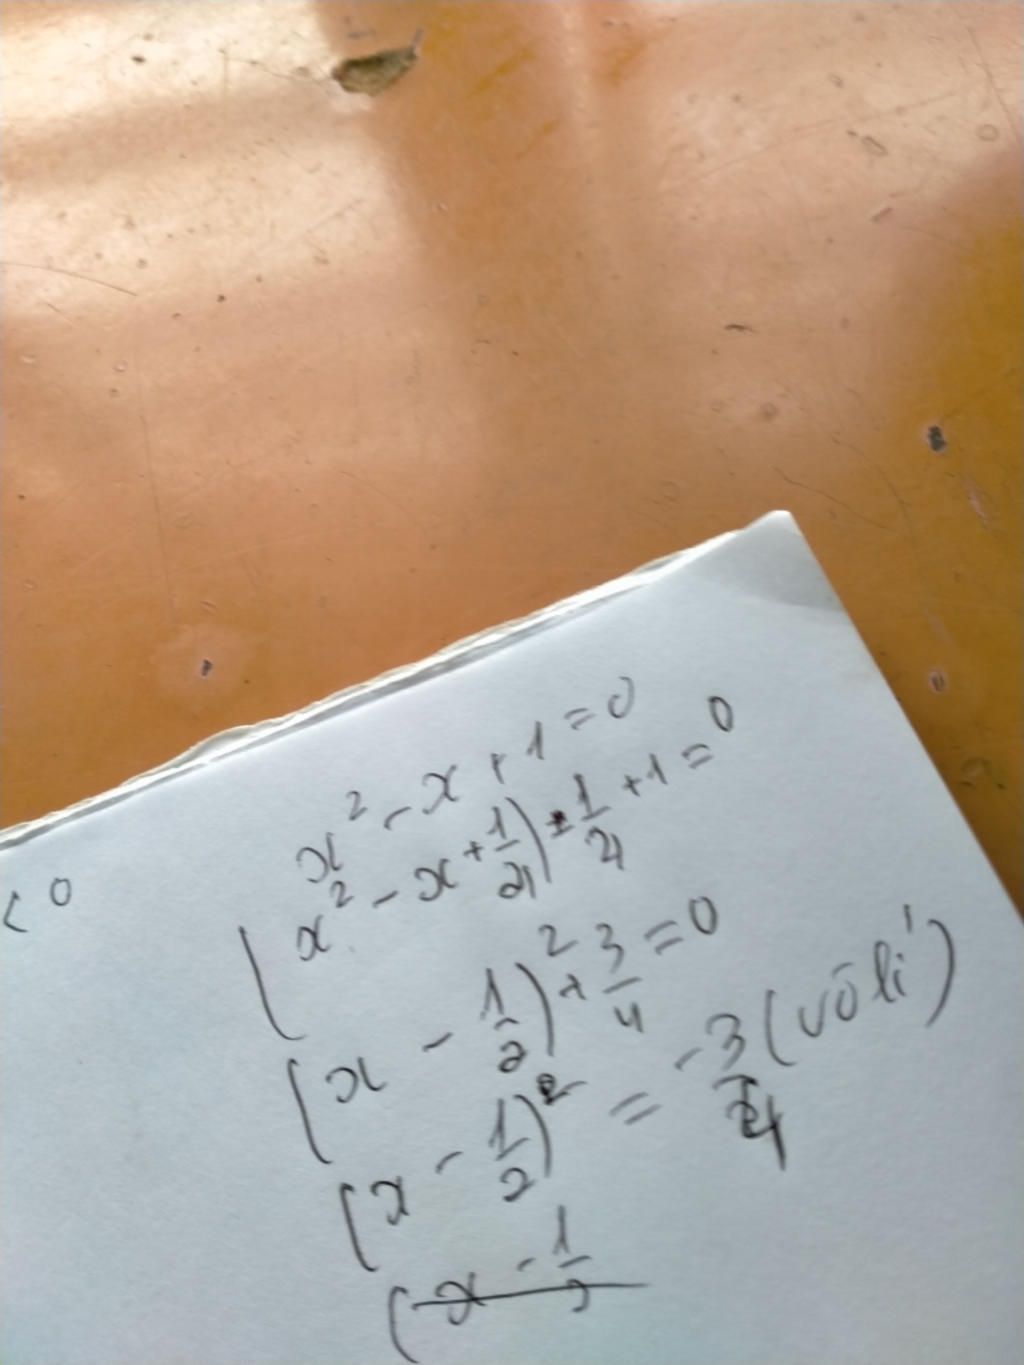 x² - x + 1 = 0
(x² - x + 1/4) - 1/4 + 1 = 0
< 0
(x - 1/2)² + 3/4 = 0
(x - 1/2)² = -3/4 (vô lí)
(x - 1/2